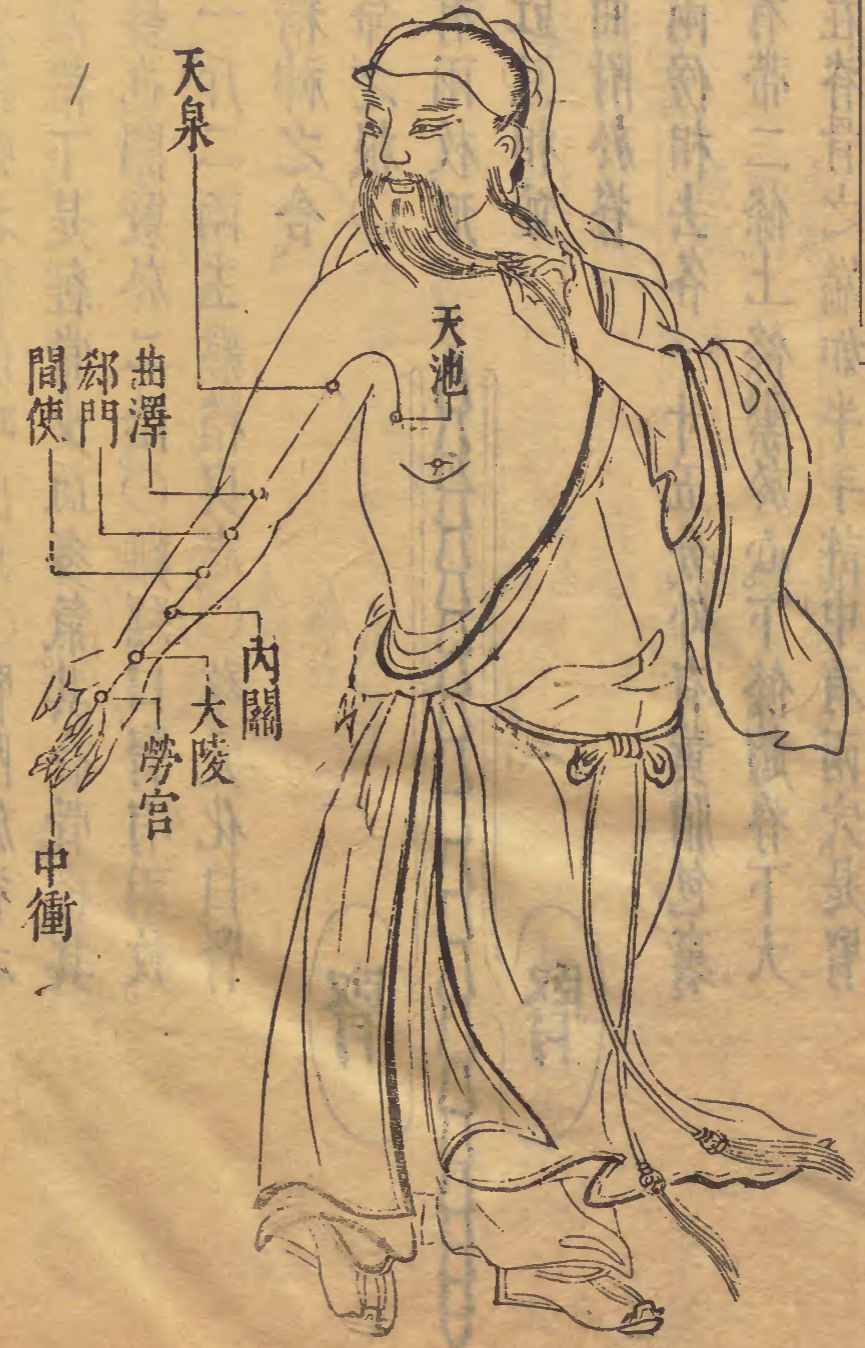 天池
天泉
曲澤
郄門
間使
內關
大陵
勞宮
中衝